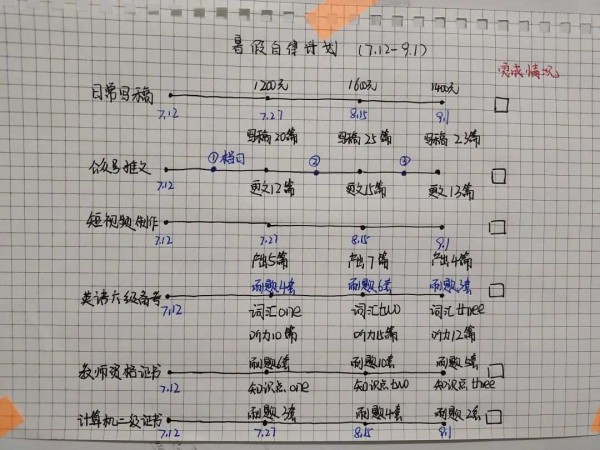 暑假自律计划 (7.12-9.1)
完成情况
1200元 1600元 1400元
日常写稿
7.12 7.27 8.15 9.1
写稿20篇 写稿25篇 写稿23篇
①栏目 ② ③
公众号推文
7.12
更文12篇 更文15篇 更文13篇
短视频制作
7.12 7.27 8.15 9.1
产出5篇 产出7篇 产出4篇
刷题4套 刷题6套 刷题3套
英语六级备考
7.12
词汇one 词汇two 词汇three
听力10篇 听力15篇 听力12篇
刷题6套 刷题10套 刷题5套
教师资格证书
7.12
知识点one 知识点two 知识点three
刷题3套 刷题4套 刷题2套
计算机二级证书
7.12 7.27 8.15 9.1